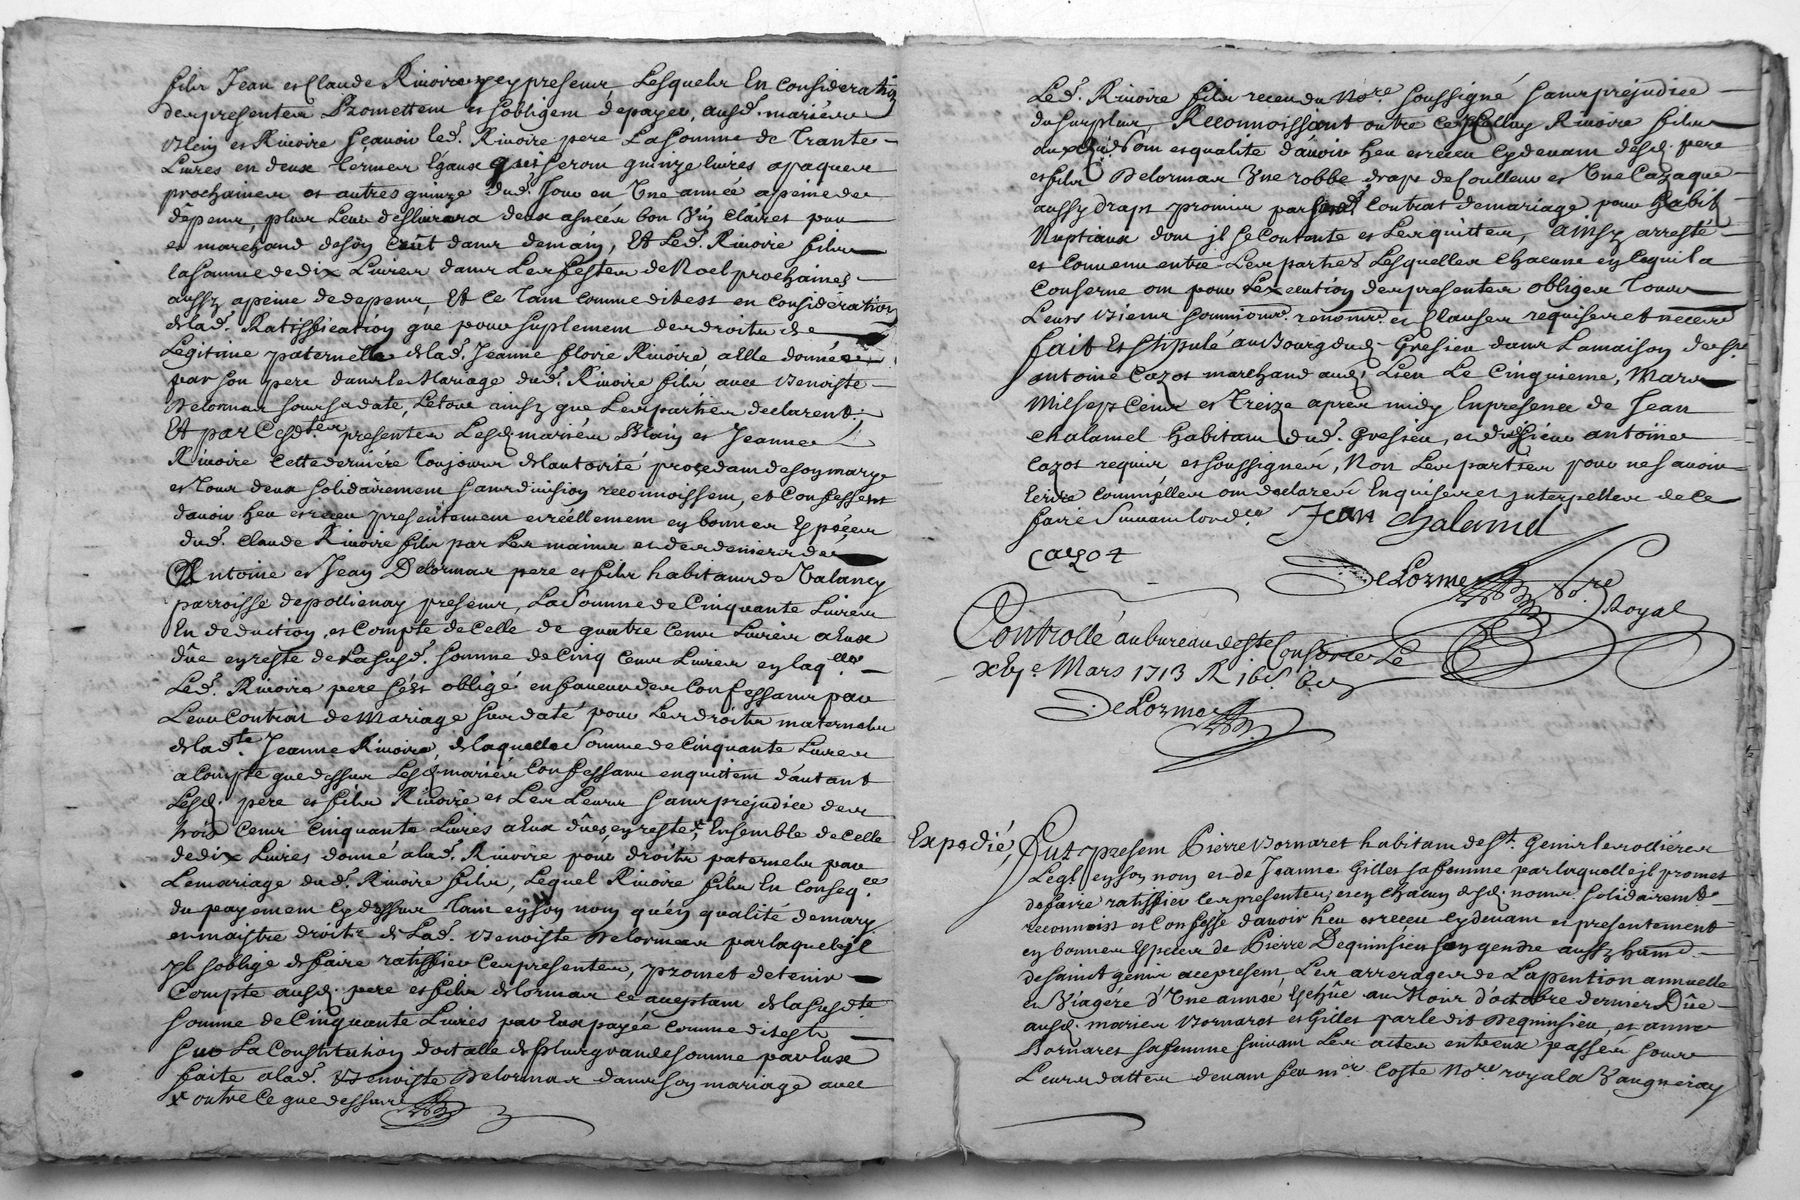 fils Jean et Claude Rivoire ey presens Lesquels En consideration
des presentes Promettent et sobligent de payer, ausd. mariés
Blein et Rivoire sçavoir led. Rivoire pere La somme de Trante
Livres en deux termes Egaux qui seront quinze livres a paques
prochaines et autres quinze dud. Jour en Une année a peine de
dêpens, plus Leur deslivrera deux asnées bon vin claires pur
et marchand de son Crût dans demain, Et Led. Rivoire fils
la somme de dix Livres dans Les festes de Noel prochaines
aussy a peine de depens, Et ce Tant comme dit est en considération
de lad. Ratiffication que pour suplement des droits de
Legitime paternelle de lad. Jeanne florie Rivoire a elle donnée
par son pere dans le Mariage dud. Rivoire fils avec Benoiste
Delormas sous sa date, Le tout ainsy que Les parties declarent,
Et par Cesd.tes presentes Lesd. mariés Blain et Jeanne
Rivoire cette derniére toujours de lautorité procedant de son mary
et Tous deux solidairement sans division reconnoissent, et Confessent
d'avoir heu et receu presentement et réellement en bonnes Espéces
dud. Claude Rivoire fils par Les mains et des deniers de
Antoine et Jean Delormas pere et fils habitants de Talancy
parroisse de pollienay presens, La Somme de Cinquante Livres
En deduction, et Compte de Celle de quatre Cens Livres a Eux
dûe ey reste de La susd. somme de Cinq Cens Livres ey laq.elle
Led. Rivoire pere s'est obligé en faveur des Confessans par
Leur Contrat de Mariage sus daté pour Les droits maternels
de lad.te Jeanne Rivoire, de laquelle Somme de Cinquante Livres
a Compte que dessus Lesd. mariés Confessans en quittent d'autant
Lesd. pere et fils Rivoire et Les Leurs sans prejudice des
trois Cens Cinquante Livres a Eux dûes ey reste, x Ensemble de Celle
de dix Livres donné a lad. Rivoire pour droits paternels par
Le mariage dud. Rivoire fils, Lequel Rivoire fils En Conseq.ce
du payement Cy dessus Tant en son nom qu'en qualité de mary
et maistre droits de Lad. Benoiste Delormas par laquelle jl
jl soblige de faire ratiffier Ces presentes, promet de tenir
Compte ausd. pere et fils delormas ce aceptant de la susd.te
somme de Cinquante Livres par Eux payée comme dit est
sur La Constitution dotalle de plus grande somme par Eux
faite a lad. Benoiste Delormas dans son mariage avec
x outre ce que dessus
Led. Rivoire fils receu du No.re soussigné sans prejudice
du surplus, Reconnoissant outre ce Rivoire fils
nom et qualité d'avoir heu et receu cy devant desd. pere
et fils Delormas Une robbe drap de Coulleur et Une Cazaque
aussy drap promis par sond. Contrat de mariage pour habits
Nuptiaux dont jl se Contante et Les quitte, ainsy arresté
et Convenu entre Les parties Lesquelles chacune ey Ce qui la
Conserne ont pour Lexecution des presentes obligés Tous
Leurs Biens soumions. renonns. et Clauses requises et neccess.
fait Et stipulé au Bourg dud. Gresieu dans La maison de sr.
antoine Cazot marchand aud. Lieu Le Cinquieme, Mars
Mil sept Cens et Treize apres midy En presence de Jean
Chalamel habitant dud. Gresieu, et dud. sieur antoine
Cazot requis et soussignés, Non Les parties pour ne sçavoir
Ecrire comme elles ont declarées Enquises et jnterpellées de ce
faire suivant lord.ce Jean Chalamel
Cazot
DeLorme No.re Royal
Controllé au bureau de Ste Consorce Le
xvj.e Mars 1713 R
DeLorme
Expedié, Fut present Pierre Bornaret habitant de St. Genis les ollières
Leql. ey son nom et de Jeanne Gilles sa femme par laquelle jl promet
de faire ratiffier Ces presentes, et en chacun desd. noms solidairemt.
reconnoit et Confesse d'avoir heu et receu cy devant et presentement
en bonnes Especes de Pierre Dequinsieu son gendre aussy hant.
de saint genis ace present Les arrerages de La pention annuelle
et Viagére d'Une année Eschûe au Mois d'octobre dernier Dûe
ausd. mariés Bornaret et Gilles par le dit Dequinsieu, et anne
Bornaret sa femme suivant Les actes entreux passés sous
Leurs dattes devant feu m.er Coste No.re royal a Vaugneray